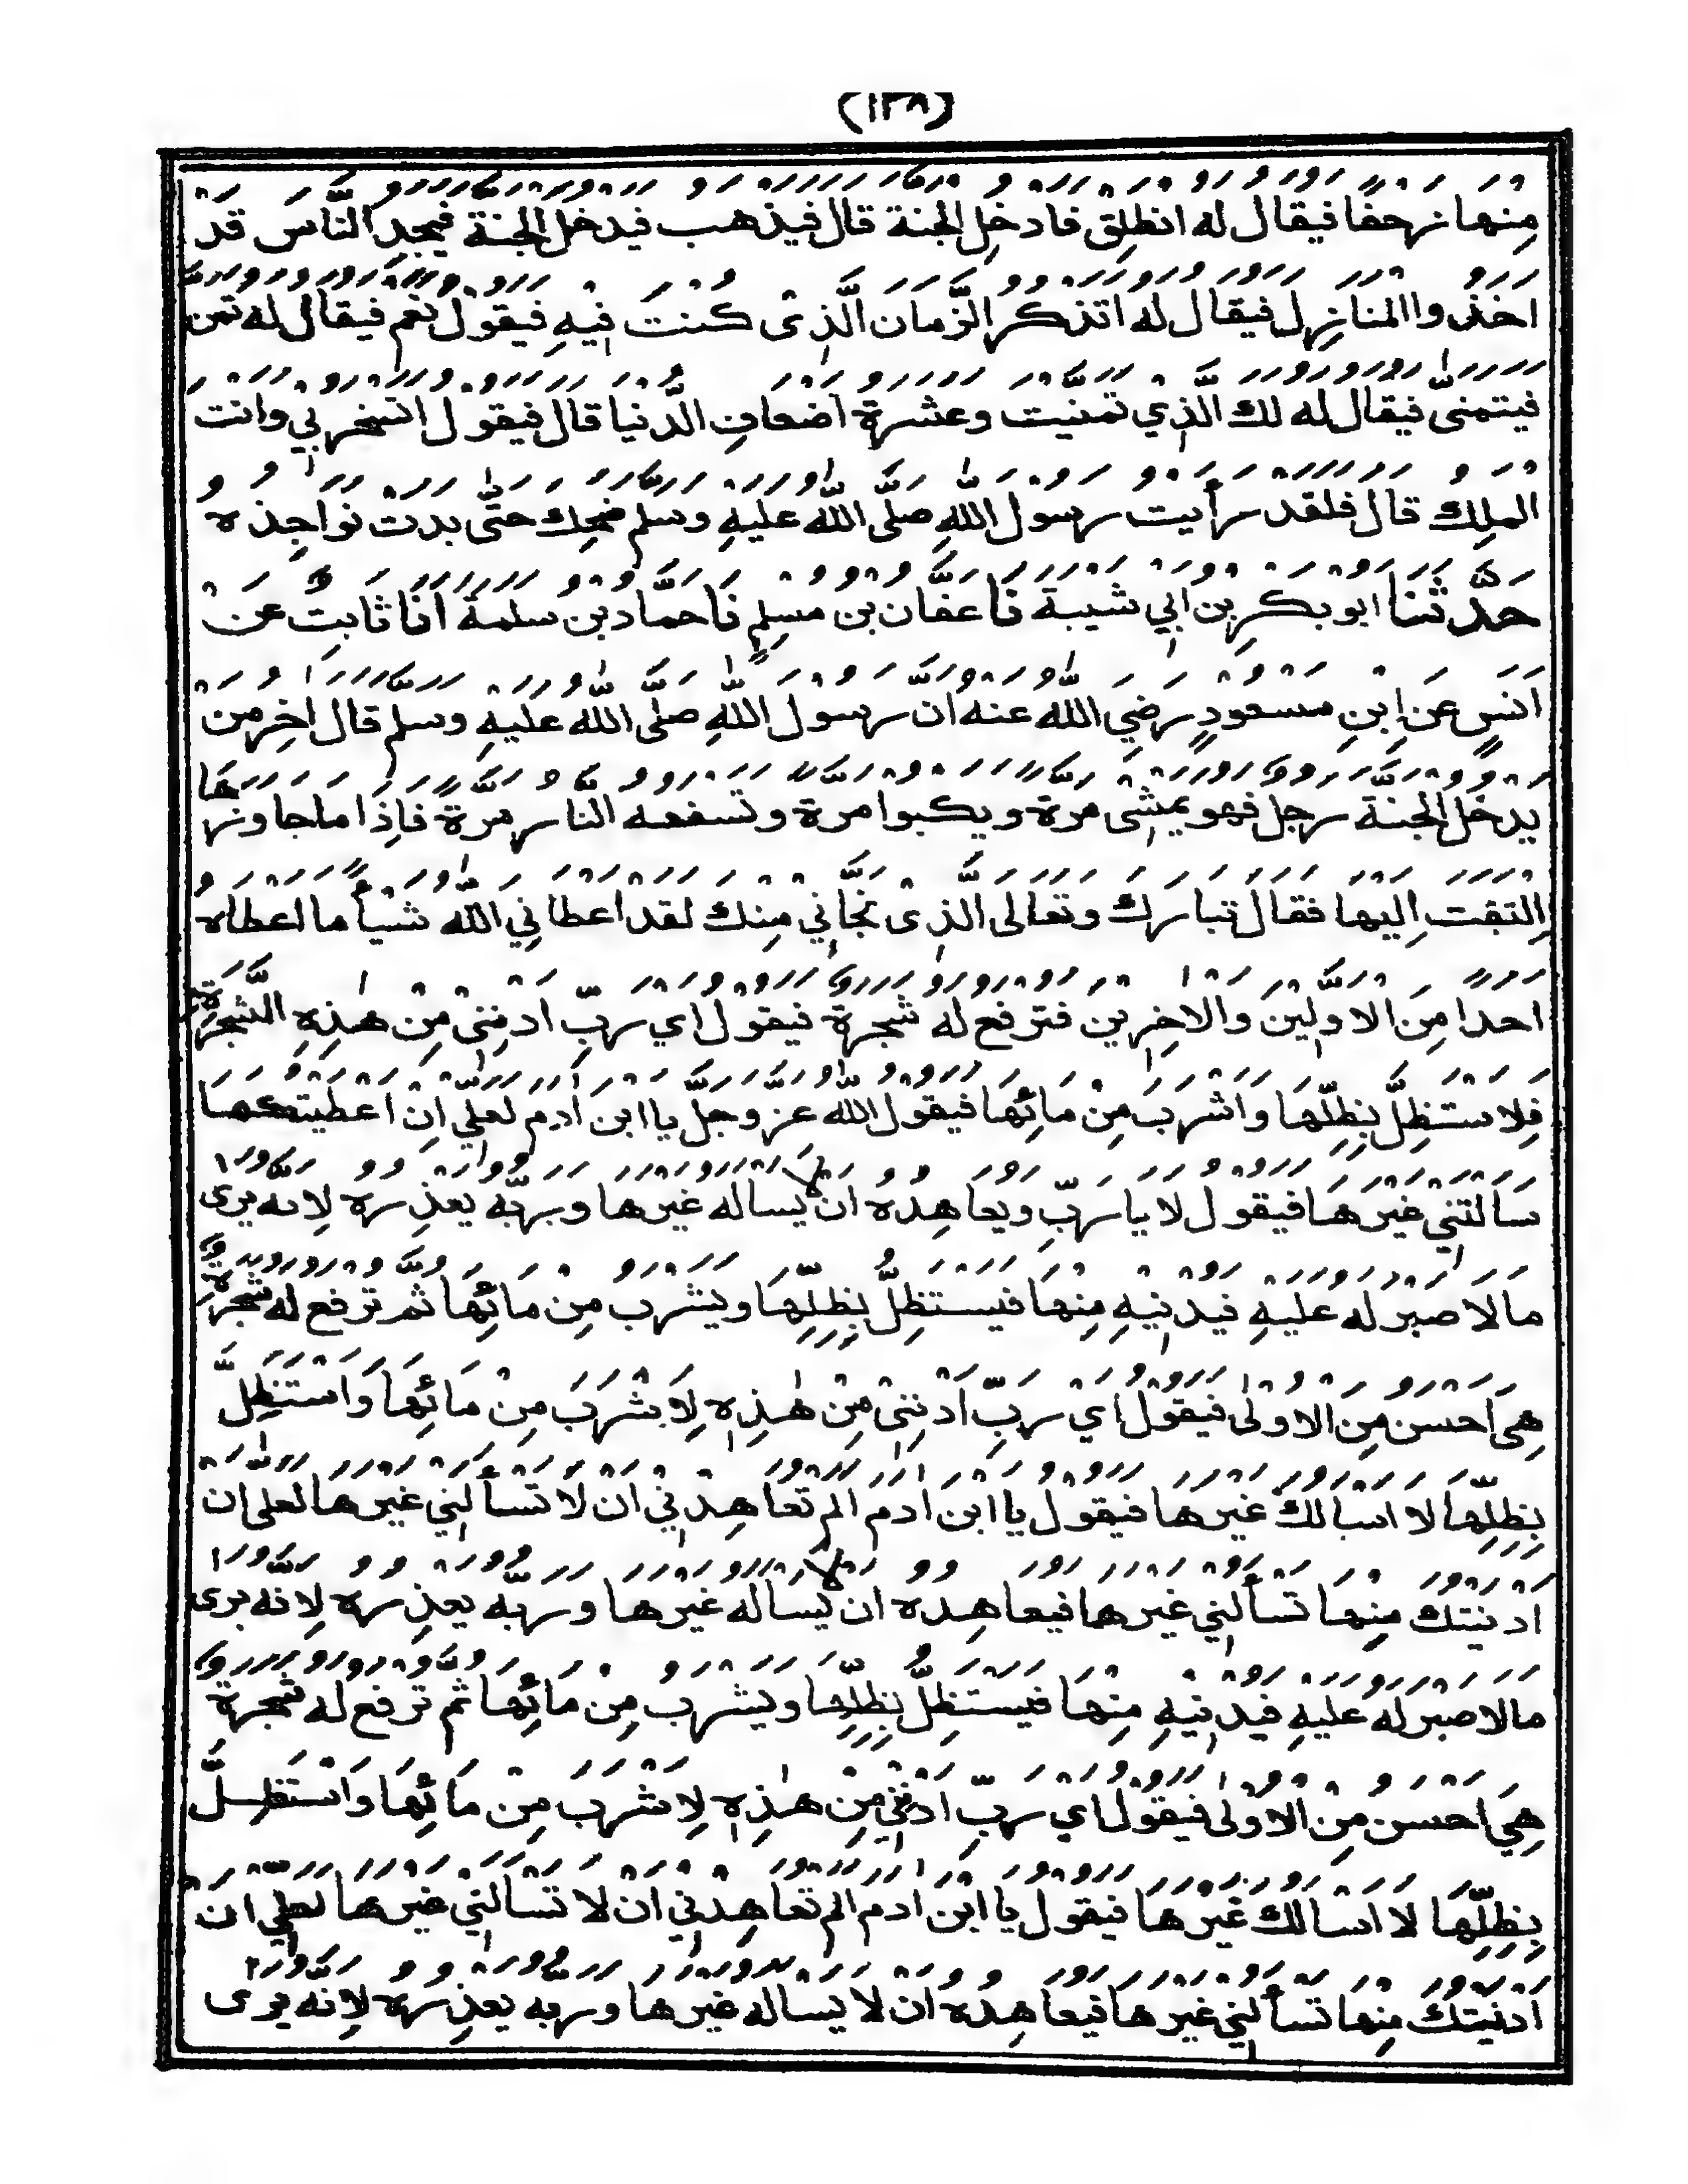 (١٣٨)
مِنها زحفا فيقال له انطلِق فادخلِ الجنة قال فيذهب فيدخل الجنة فيجدِ النَّاسَ قَدْ
اَخَذُوا المنازِل فيقال له اتذكر الزَّمان الَّذِىْ كنتَ فِيهِ فيقول نعم فيقال له تمن
فيتمنى فيقال له لك الذِي تمنيت وعشرة اضعافِ الدّنيا قال فيقول اتسخر بِي وانت
الملِك قال فلقد رأيت رسول اللهِ صلى الله عليهِ وسلم ضحِك حتى بدت نواجِذه
حدَّثنا ابو بكرِ بن ابِي شيبة نا عفان بن مسلِمٍ نا حماد بن سلمة انا ثابِت عن
انسٍ عنِ ابنِ مسعودٍ رضِي الله عنه ان رسول اللهِ صلى الله عليهِ وسلم قال اخِر من
يدخل الجنة رجل فهو يمشِى مرة ويكبوا مرة وتسفعه النار مرة فاِذا ما جاوزها
اِلتفت اِليها فقال تبارك وتعالى الذِى نجانِي مِنك لقد اعطانِي الله شيأ ما اعطاه
احدا مِن الاولِين والاخِرِين فترفع له شجرة فيقول اي ربِّ ادنِنِى مِن هٰذِهِ الشَّجرةِ
فلاستظِلّ بِظِلِّها واشرب مِن مائِها فيقول الله عز وجل يا ابن ادم لعلِي اِن اعطيتكها
سالتنِي غيرها فيقول لا يا ربِّ ويعاهِده ان لا يساله غيرها وربّه يعذِره لِانه يرى
مالا صبر له عليهِ فيدنِيهِ مِنها فيستظِلّ بِظِلِّها ويشرب مِن مائِها ثم ترفع له شجرة
هِى احسن مِن الاولى فيقول اي ربِّ ادنِنِى مِن هٰذِهٖ لِاشرب مِن مائِها واستظِلّ
بِظِلِّها لا اسالك غيرها فيقول يا ابن ادم الم تعاهِدنِي ان لا تسألنِي غيرها لعلى ان
ادنيتك مِنها تسألنِي غيرها فيعاهِده ان لا يساله غيرها وربّه يعذِره لِانّه يرى
مالا صبر له عليهِ فيدنِيهِ مِنها فيستظِلّ بِظِلِّها ويشرب مِن مائِها ثم ترفع له شجرة
هِي احسن مِن الاولى فيقول اي ربِّ ادنِنِي مِن هٰذِهٖ لِاشرب مِن مائِها واستظِلّ
بِظِلِّها لا اسالك غيرها فيقول يا ابن ادم الم تعاهِدنِي ان لا تسالنِي غيرها لعلِي ان
ادنيتك مِنها تسألنِي غيرها فيعاهِده ان لا يساله غيرها وربه يعذِره لِانه يرى